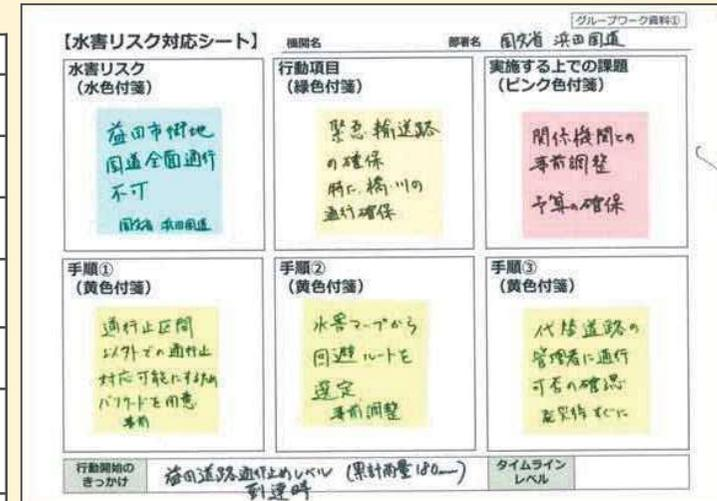 グループワーク資料①
【水害リスク対応シート】 機関名 部署名 国交省 浜田国道
水害リスク
(水色付箋)
益田市街地
国道全面通行
不可
国交省 浜田国道
行動項目
(緑色付箋)
緊急輸送路
の確保
特に、橋・川の
通行確保
実施する上での課題
(ピンク色付箋)
関係機関との
事前調整
予算の確保
手順①
(黄色付箋)
通行止区間
以外での通行止
対応可能にするため
バリケードを用意
事前
手順②
(黄色付箋)
水害マップから
回避ルートを
選定
事前調整
手順③
(黄色付箋)
代替道路の
管理者に通行
可否の確認
すぐに
行動開始の
きっかけ
益田道路通行止めレベル (累計雨量180mm)
到達時
タイムライン
レベル